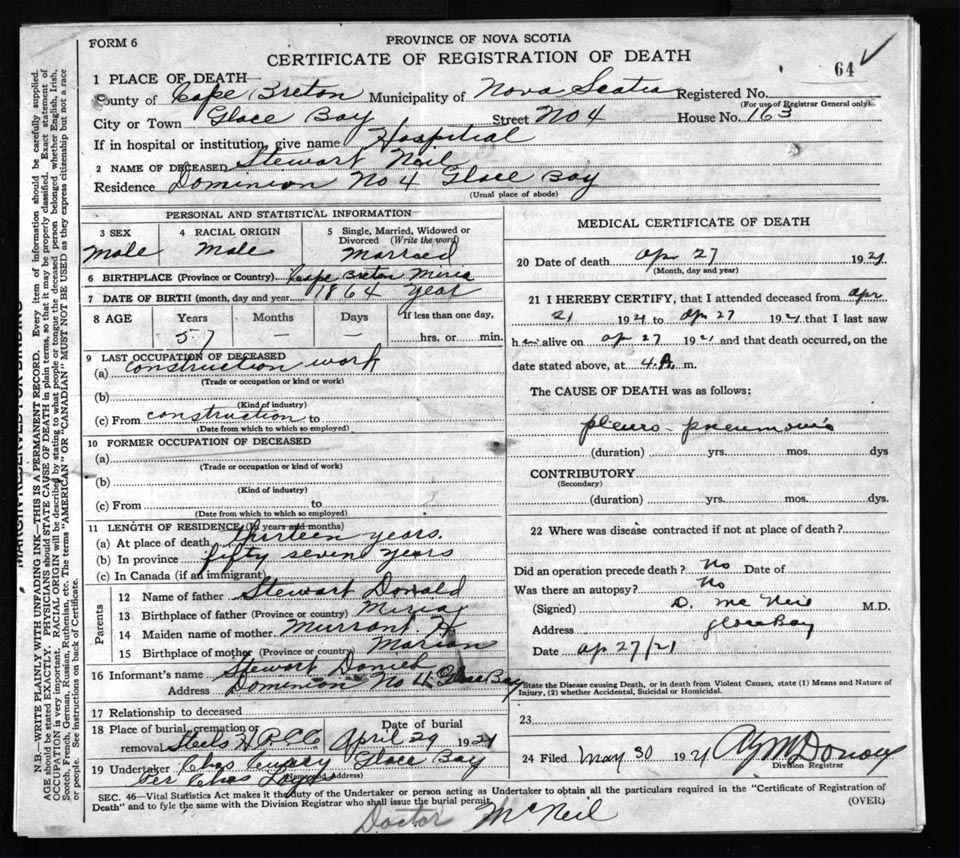 FORM 6
PROVINCE OF NOVA SCOTIA
CERTIFICATE OF REGISTRATION OF DEATH
64
1 PLACE OF DEATH
County of Cape Breton Municipality of Nova Scotia Registered No.
(For use of Registrar General only)
City or Town Glace Bay Street No 4 House No. 163
If in hospital or institution, give name Hospitial
2 NAME OF DECEASED Stewart Neil
Residence Dominion No 4 Glace Bay
(Usual place of abode)
PERSONAL AND STATISTICAL INFORMATION
3 SEX Male
4 RACIAL ORIGIN Male
5 Single, Married, Widowed or Divorced (Write the word) Marraed
6 BIRTHPLACE (Province or Country) Cape Breton Miria
7 DATE OF BIRTH (month, day and year) 1864 year
8 AGE Years Months Days If less than one day,
57 — — hrs. or min.
9 LAST OCCUPATION OF DECEASED
(a) construction work
(Trade or occupation or kind or work)
(b)
(Kind of industry)
(c) From construction to
(Date from which to which so employed)
10 FORMER OCCUPATION OF DECEASED
(a)
(Trade or occupation or kind of work)
(b)
(Kind of industry)
(c) From to
(Date from which to which so employed)
11 LENGTH OF RESIDENCE (In years and months)
(a) At place of death thirteen years.
(b) In province fifty seven years
(c) In Canada (if an immigrant)
Parents
12 Name of father Stewart Donald
13 Birthplace of father (Province or country) Miria
14 Maiden name of mother H
15 Birthplace of mother (Province or country) Marion
16 Informant's name Stewart Daniel
Address Dominion No 4 Glace Bay
17 Relationship to deceased
18 Place of burial, cremation or removal
Date of burial April 29 1921
19 Undertaker Chas Glace Bay
(Name and Address)
per Chas
MEDICAL CERTIFICATE OF DEATH
20 Date of death apr 27 1921
(Month, day and year)
21 I HEREBY CERTIFY, that I attended deceased from apr
21 1921 to ap 27 1921 that I last saw
h alive on ap 27 1921 and that death occurred, on the
date stated above, at 4 m.
The CAUSE OF DEATH was as follows:
pleuro-pneumonia
(duration) yrs. mos. dys
CONTRIBUTORY
(Secondary)
(duration) yrs. mos. dys.
22 Where was disease contracted if not at place of death?
Did an operation precede death? No Date of
Was there an autopsy? No
(Signed) D. McNeil M.D.
Address Glace Bay
Date ap 27/21
State the Disease causing Death, or in death from Violent Causes, state (1) Means and Nature of
Injury, (2) whether Accidental, Suicidal or Homicidal.
23
24 Filed May 30 1921
Division Registrar
SEC. 46—Vital Statistics Act makes it the duty of the Undertaker or person acting as Undertaker to obtain all the particulars required in the "Certificate of Registration of
Death" and to fyle the same with the Division Registrar who shall issue the burial permit.
(OVER)
Doctor McNeil
MARGIN RESERVED FOR BINDING
N.B.—WRITE PLAINLY WITH UNFADING INK—THIS IS A PERMANENT RECORD. Every item of information should be carefully supplied.
AGE should be stated EXACTLY. PHYSICIANS should STATE CAUSE OF DEATH in plain terms, so that it may be properly classified. Exact statement of
OCCUPATION is very important. RACIAL ORIGIN will be described by stating to what people or tongue the deceased person belonged whether English, Irish,
Scotch, French, German, Russian, Ruthenian, etc. The terms "AMERICAN" OR "CANADIAN" MUST NOT BE USED as they express citizenship but not a race
or people. See instructions on back of Certificate.